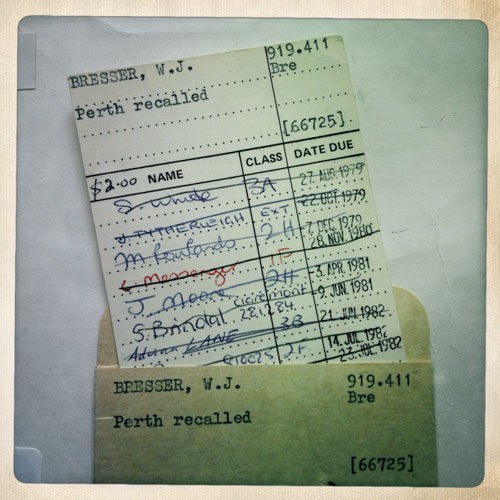 BRESSER, W.J. 919.411
Bre
Perth recalled
[66725]
$2.00 NAME CLASS DATE DUE
S. White 3A 27. AUG. 1979
J. PITHERLEIGH EXT 22 OCT 1979
M Rowlands 2H -7. DEC. 1979
28. NOV. 1980
L Messenger 1F
J. Moore 2H -3. APR. 1981
S. Brindal Claremont -9. JUN. 1981
28.1.84
Adrian LANE 3B 21. JUN. 1982
14. JUL. 1982
2F 23. JUL. 1982
BRESSER, W.J. 919.411
Bre
Perth recalled
[66725]